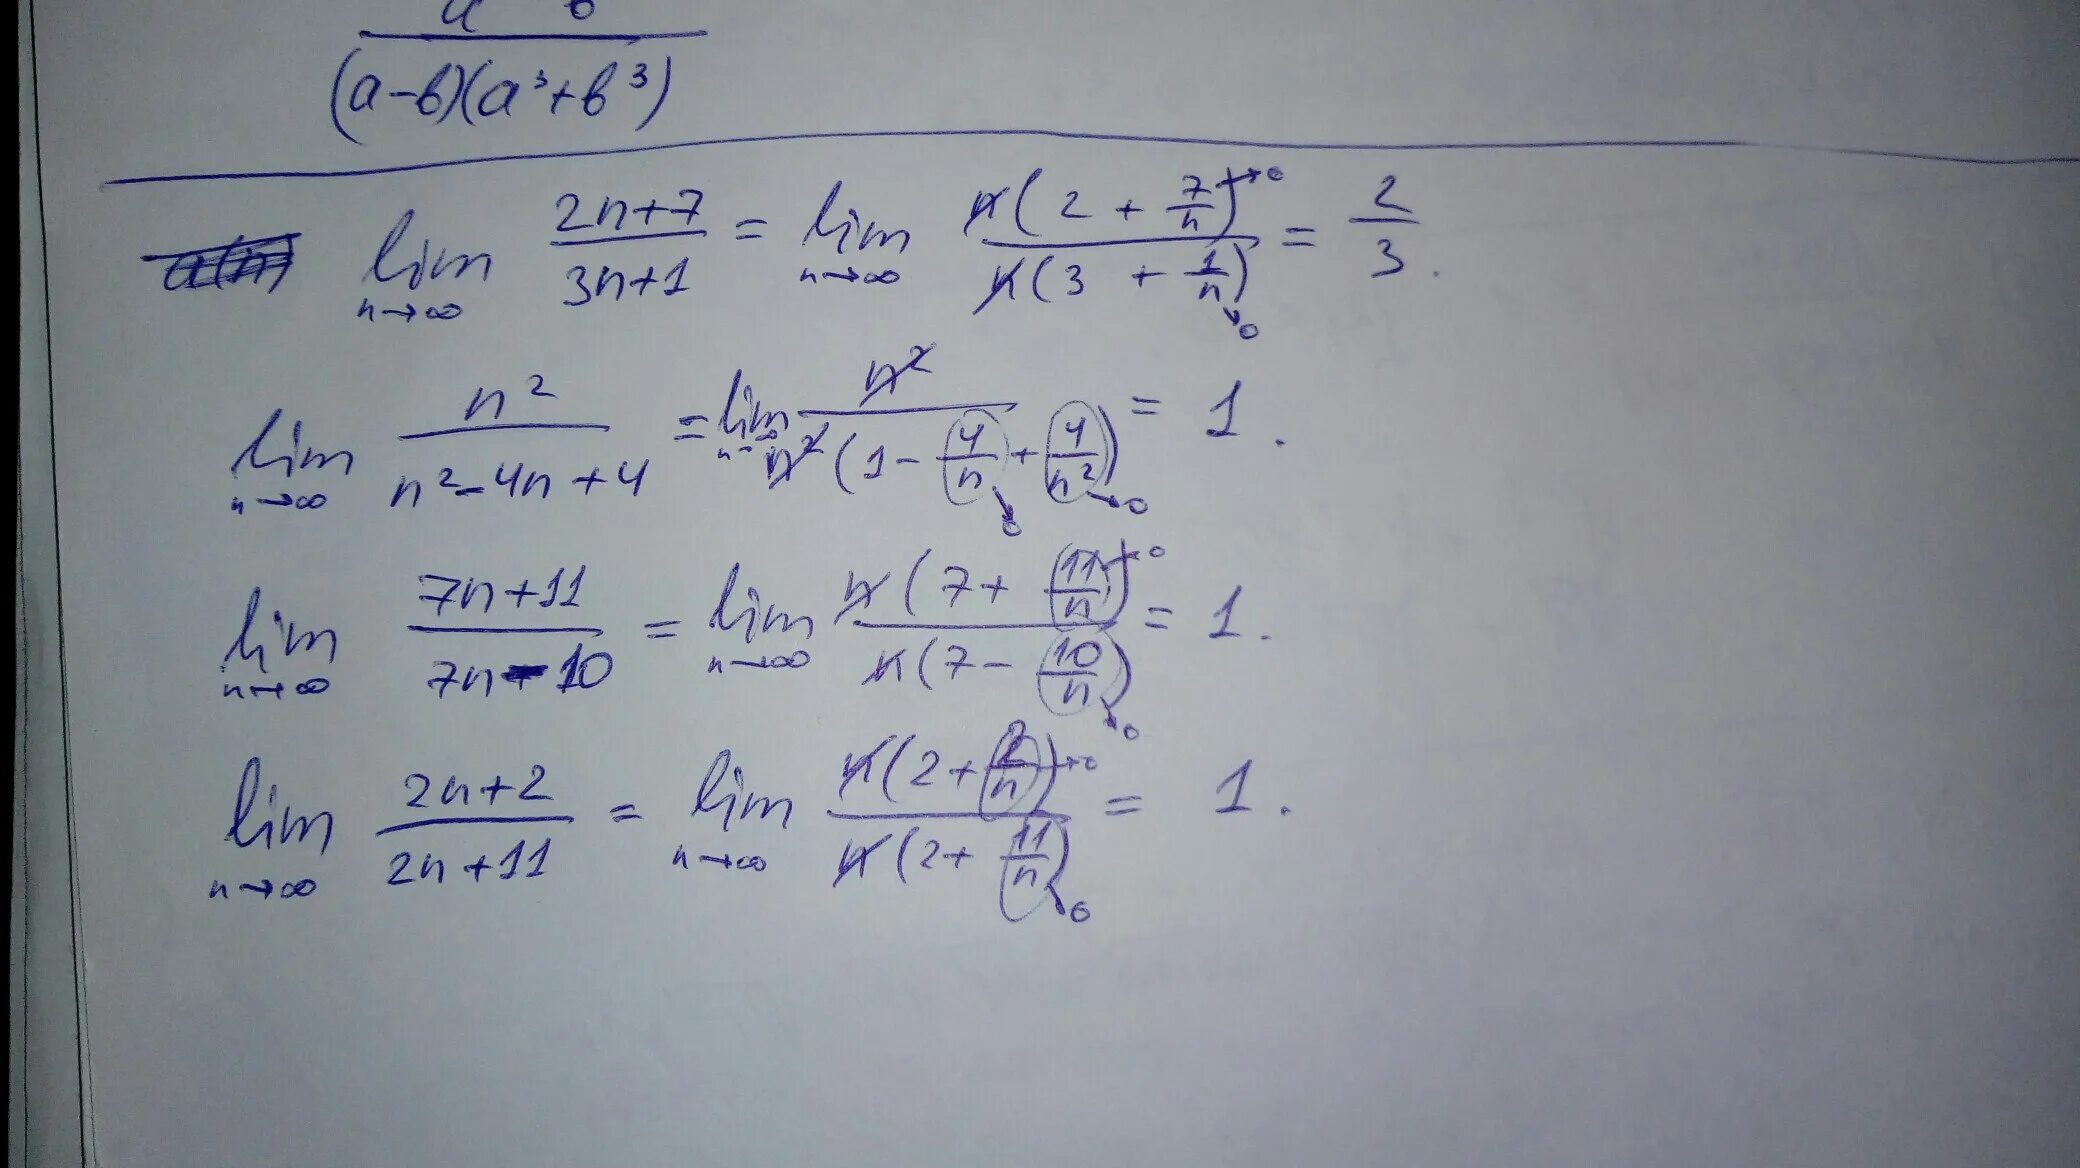 a в
(a-в)(a³+в³)
lim n→∞ (2n+7)/(3n+1) = lim n→∞ n(2 + 7/n)→0 / n(3 + 1/n)→0 = 2/3.
lim n→∞ n²/(n²-4n+4) = lim n→∞ n²/n²(1 - 4/n→0 + 4/n²→0) = 1.
lim n→∞ (7n+11)/(7n-10) = lim n→∞ n(7 + 11/n)→0 / n(7 - 10/n)→0 = 1.
lim n→∞ (2n+2)/(2n+11) = lim n→∞ n(2 + 2/n)→0 / n(2 + 11/n)→0 = 1.